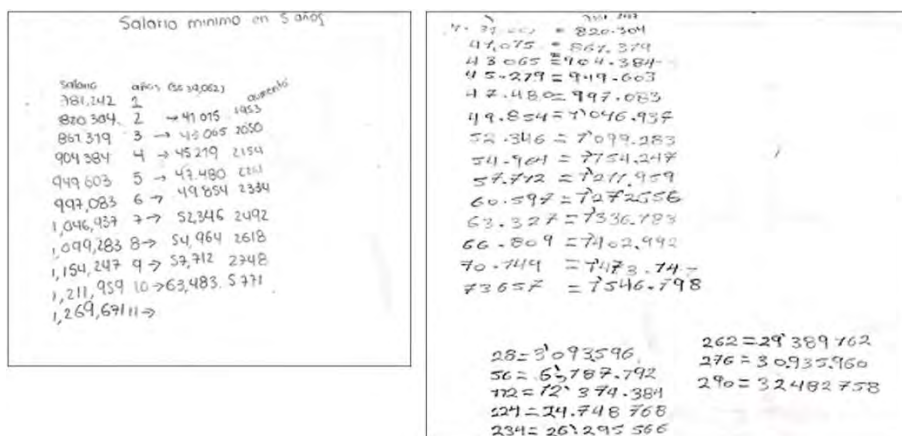 Salario minimo en 5 años
Salario años ($39,062) aumento
781,242 1
820 304. 2 → 41 015 1953
861 319 3 → 43 065 2050
904 384 4 → 45 219 2154
949 603 5 → 47.480
997,083 6 → 49 854 2334
1,046,937 7 → 52,346 2492
1,099,283 8 → 54,964 2618
1,154,247 9 → 57,712 2748
1,211,959 10 → 63,483. 5771
1,269,671 11 →
= 820.304
41,015 = 861.319
43 065 = 904.384
45.219 = 949.603
47.480 = 997.083
49.854 = 1'046.937
52.346 = 1'099.283
54.964 = 1'154.247
57.712 = 1'211.959
60.597 = 1'272556
63.327 = 1'336.183
66.809 = 1'402.992
70.149 = 1'473.14
73657 = 1'546.798
28 = 3'093596
56 = 6'187.192
112 = 12'374.384
224 = 24.748 768
234 = 26'295 566
262 = 29'389162
276 = 30.935.960
290 = 32482758